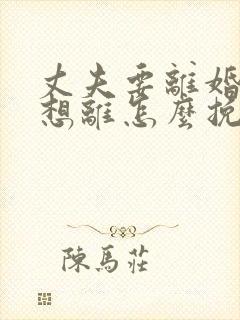 丈夫要離婚
想離怎麼挽
陳馬莊